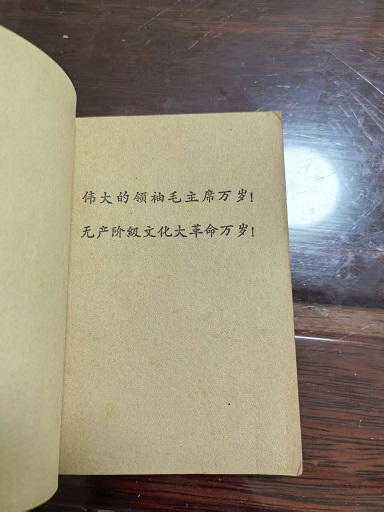 伟大的领袖毛主席万岁!
无产阶级文化大革命万岁!